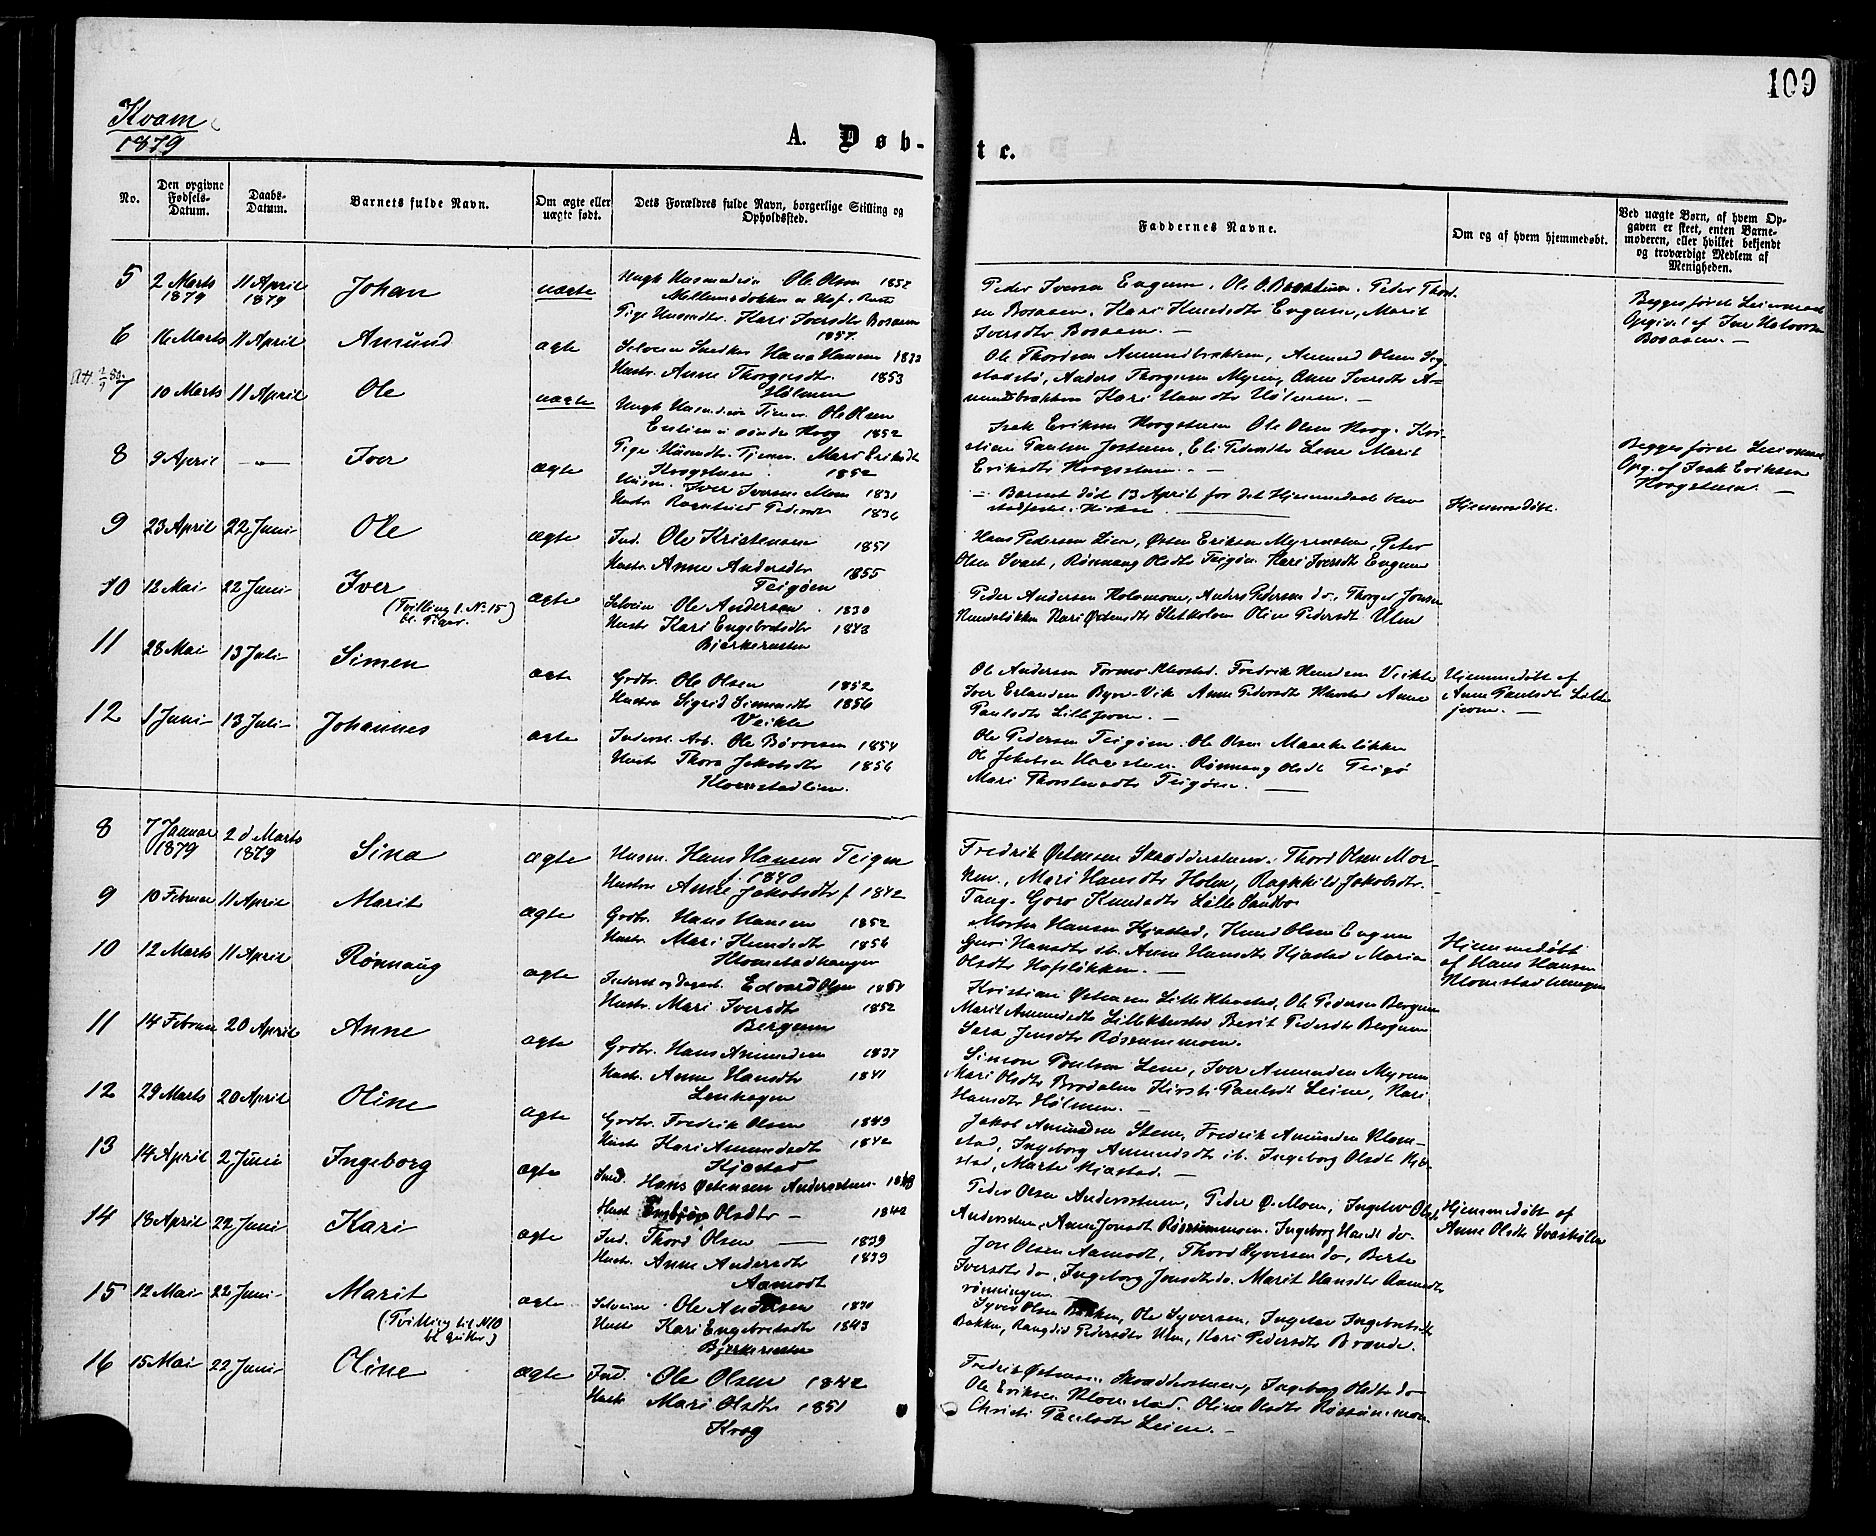 109
Kvam
1879
A. Døb-
te.
No.
Den opgivne Fødsels-Datum.
Daabs-Datum.
Barnets fulde Navn.
Om ægte eller uægte født.
Dets Forældres fulde Navn, borgerlige Stilling og Opholdssted.
Faddernes Navne.
Om og af hvem hjemmedøbt.
Ved uægte Børn, af hvem Opgaven er skeet, enten Barnemoderen, eller hvilket bekjendt og troværdigt Medlem af Menigheden.
5 2 Marts 1879 11 April 1879 Johan uægte
Ole Olsen 1852
Pige Kari Iversdtr Bosaaen
1857
Peder Iversen Engum. Ole O. Peder Thord-
en Bosaaen, Kari Engum, Marit
Iversdtr Bosaaen. —
Begges første Leiermaal
Opgivet af Iver Halvorsen
Bosaaen. —
6 16 Marts 11 April Amund ægte
Selveier Snedker Hans Hansen 1833
Hustr. Anne Thorgersdtr. 1853
Hølmen
Ole Thordsen Amundbakken, Amund Olsen
Anders Thorgersen Myren, Anne Iversdtr A-
mundsbakken Kari Hansdtr Hølmen. —
7 10 Marts 11 April Ole uægte
Ole Olsen
søndre Krog 1852
Pige Mari Eriksdtr
1852
Isak Eriksen Ole Olsen Krog. Kri-
stine Paulsen Eli Pedersdtr Leine Marit
Eriksdtr
Begges første Leiermaal
Opg. af Isak Eriksen
8 9 April — " — Iver ægte
Husm. Iver Iversen Moen 1831
Hustr. Ragnhild Pedersdtr 1836
— Barnet død 13 April før det Hjemmedaab blev
stadfæstet i Kirken.
Hjemmedøbt.
9 23 April 22 Juni Ole ægte
Ind. Ole Kristensen 1851
Hustr. Anne Andersdtr 1855
Teigøen
Hans Pedersen Lien, Østen Eriksen Peter
Olsen Rønnaug Olsdtr Teigøen Kari Iversdtr Engum
10 12 Mai 22 Juni Iver
(Tvilling t. No 15
bl. Piger.)
ægte
Selveier Ole Andersen 1830
Hustr Kari Engebretsdtr 1843
Bjerkerusten
Peder Andersen Holomoen, Anders Pedersen do, Thorger Jonsen
Kari Østensdtr Sletholen Oline Pedersdt Ulen
11 28 Mai 13 Juli Simen ægte
Grdbr. Ole Olsen 1852
Hustru Sigrid Simensdtr 1856
Veikle
Ole Andersen Formo Fredrik Veikle
Iver Erlandsen Byre-Vik Anne Pedersdtr Anne
Paulsdtr Lillejoren. —
Hjemmedøbt af
Anne Paulsdtr Lille
joren. —
12 1 Juni 13 Juli Johannes ægte
Inderst. Arb. Ole Børresen 1854
Hustr Thora Jakobsdtr 1856
Klomstadlien.
Ole Pedersen Teigøen. Ole Olsen
Ole Jakobsen Rønnaug Olsdt Teigø
Mari Thorstensdtr Teigøen. —
8 7 Januar 1879 2d Marts 1879 Sina ægte
Husm. Hans Hansen Teigen
f. 1840
Hustru Anne Jakobsdtr f. 1842
Fredrik Østensen Skrædderstuen. Thord Olsen Mor-
ken., Mari Hansdtr Holen, Ragnhild Jakobsdtr.
Goro Knudsdtr Lille Sandbo
9 10 Februar 11 April Marit ægte
Grdbr. Hans Hansen 1852
Hustr. Mari 1856
Klomstadhaugen
Morten Hansen Kjæstad, Knud Olsen Engum
Guri Hansdtr ib. Anne Hansdtr Kjæstad Maria
Olsdtr Hofsløkken. —
Hjemmedøbt
af Hans Hansen
Klomstadhaugen
10 12 Marts 11 April Rønnaug ægte
Inderst og Edvard Olsen 1854
Hustr. Mari Iversdtr 1852
Bergum
Kristian Østensen Lille Ole Pedersen Bergum
Marit Amundsdtr Lille Berit Pedersdtr Bergum
Sara Jensdtr Røssummoen.
11 14 Februar 20 April Anne ægte
Grdbr. Hans Amundsen 1837
Hustr. Anne Hansdtr 1841
Simon Poulsen Leine, Iver Amundsen Myren
Mari Olsdtr Brodalen Kirsti Paulsdt Leine, Kari
Hansdtr Hølmen. —
12 29 Marts 20 April Oline ægte
Grdbr. Fredrik Olsen 1849
Hustr Kari Amundsdtr 1842
Kjæstad
Jakob Amundsen Steen, Fredrik Amundsen Klom-
stad, Ingeborg Amundsdtr ib. Ingeborg Olsdt Kjæ-
stad, Marte Kjæstad. —
13 14 April 2 Juni Ingeborg ægte
Ind. Hans Østensen Andersstuen. 1848
Hust Embjør Olsdtr — 1842
Peder Olsen Andersstuen, Peder Ø. Moen, Ingebor Olsdt
Andersstuen, Anne Jonsdt Røssummoen. Ingeborg Hansdt do.
Hjemmedøbt af
Anne Olsdtr
14 18 April 22 Juni Kari ægte
Ind. Thord Olsen — 1839
Hustr. Anne Andersdtr 1839
Aamodt
Jon Olsen Aamodt, Thord Syversen do, Berte
Iversdtr do, Ingeborg Jonsdt do. Marit Hansdtr Aamodts
rønningen —
15 12 Mai 22 Juni Marit
(Tvilling til N10
bl. Gutter.)
ægte
Selveier Ole Andersen 1830
Hust Kari Engebretsdtr 1843
Bjerkerusten
Syver Olsen Bakken, Ole Syversen, Ingebretsdtr
Bakken, Rangdid Pedersdtr Ulen, Kari Pedersdtr Brænde.
16 15 Mai 22 Juni Oline ægte
Ind. Ole Olsen 1842
Hustr Mari Olsdtr 1851
Krog
Fredrik Østensen Skrædderstuen, Ingeborg Olsdtr do
Ole Eriksen Klomstad. Oline Olsdtr Røssummoen
Christi Paulsdtr Leine. —